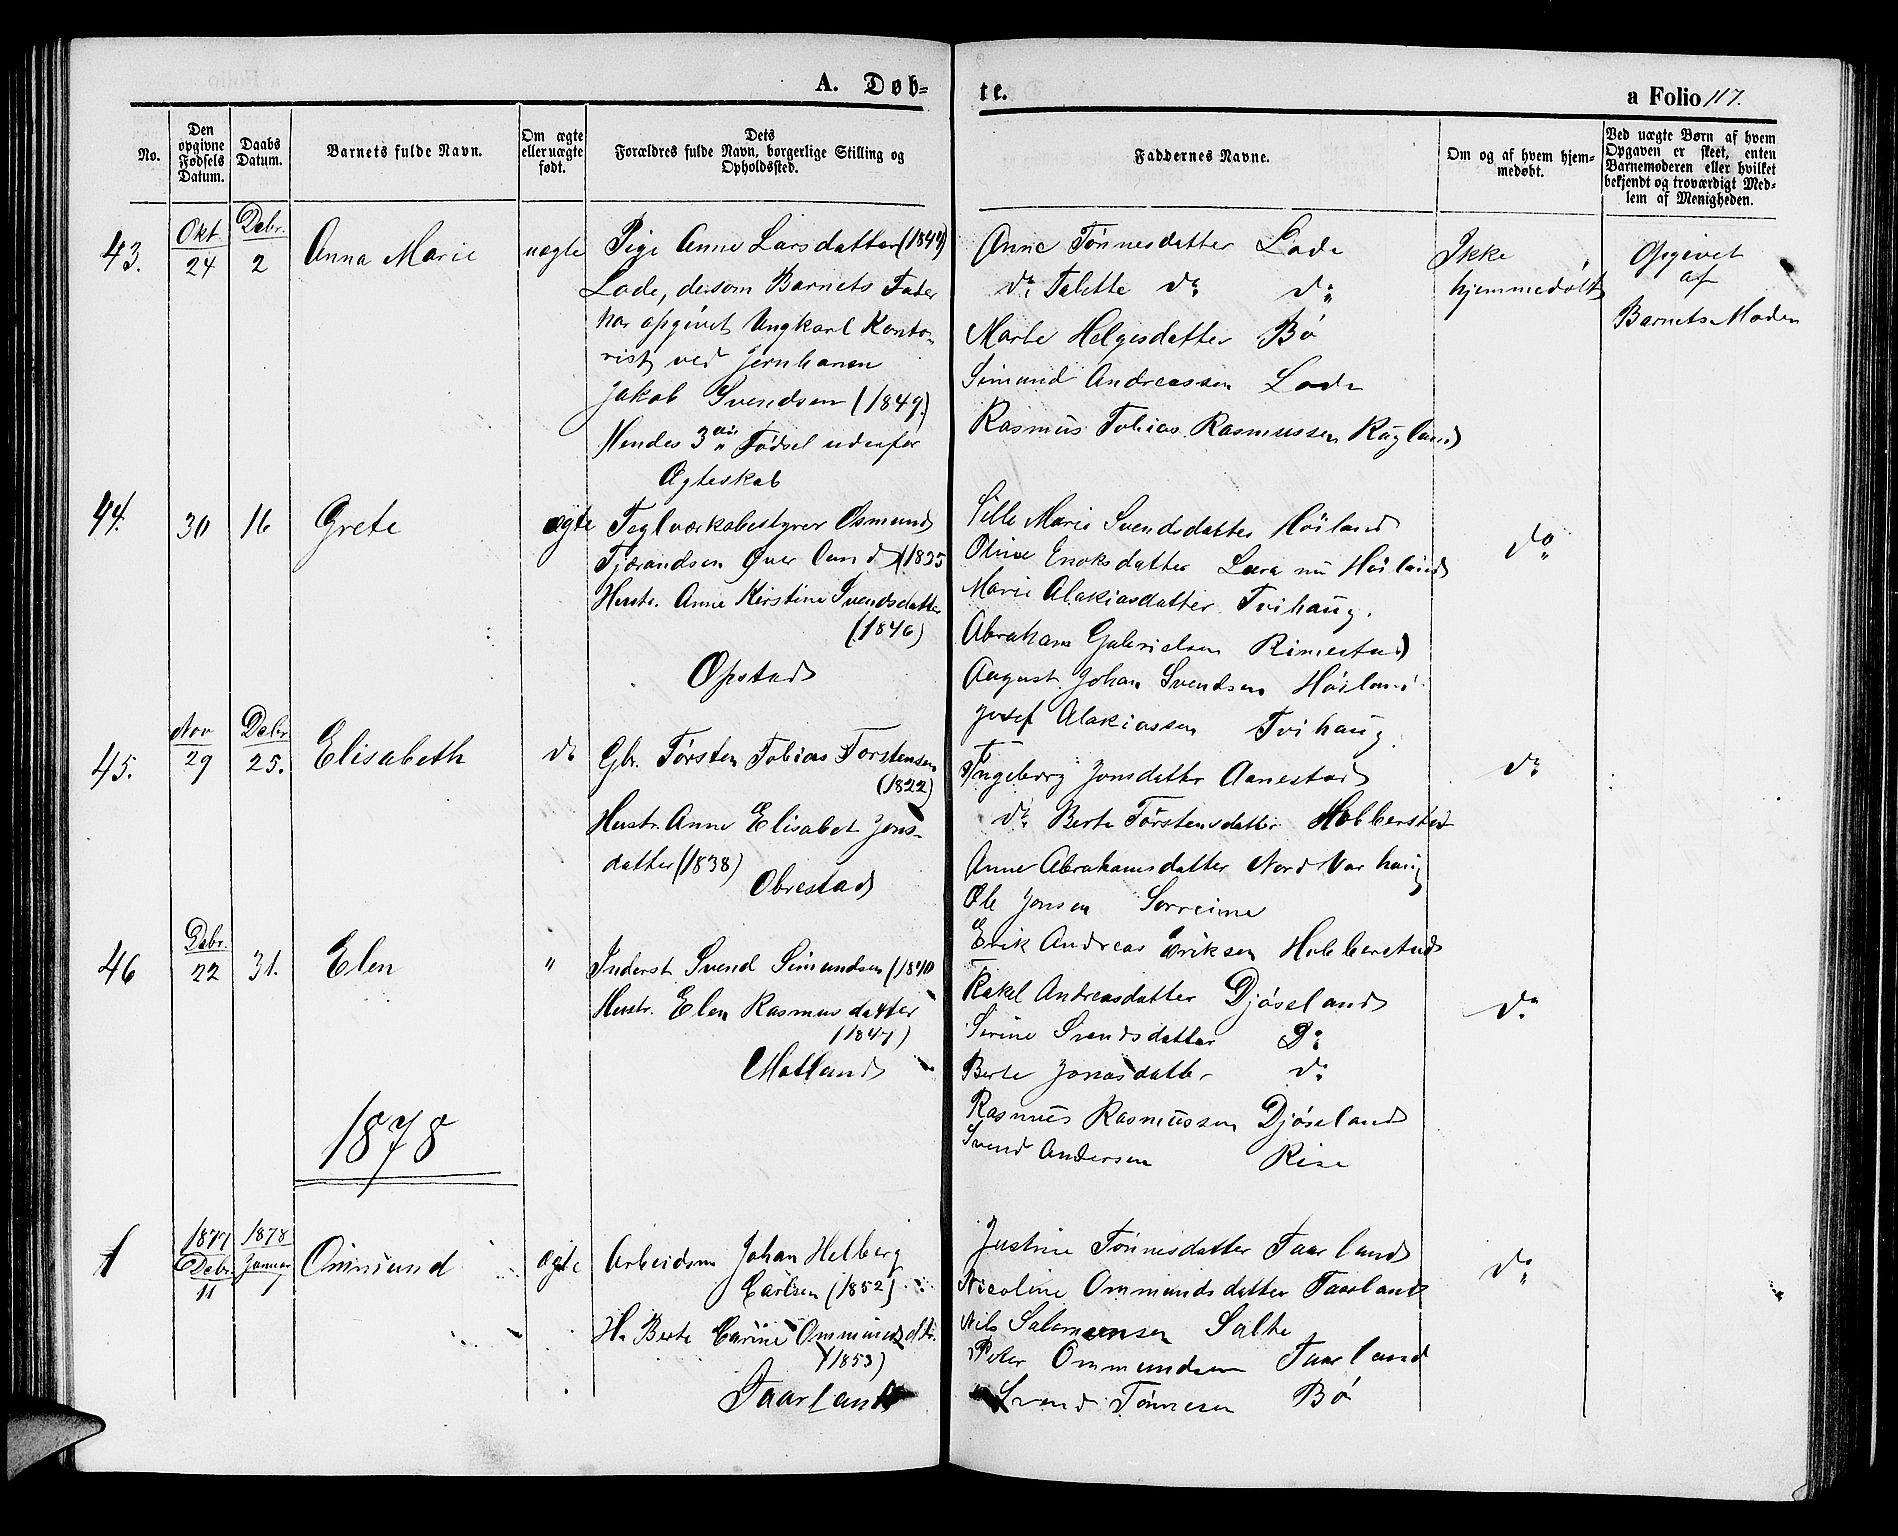 A. Døb-
te.
a Folio 117.
No.
Den opgivne Fødsels Datum.
Daabs Datum.
Barnets fulde Navn.
Om ægte eller uægte født.
Dets Forældres fulde Navn, borgerlige Stilling og Opholdssted.
Faddernes Navne.
Om og af hvem hjemmedøbt.
Ved uægte Børn af hvem Opgaven er skeet, enten Barnemoderen eller hvilket bekjendt og troværdigt Medlem af Menigheden.
43.
Okt 24
Debr. 2
Anna Marie
uægte
Pige Anne Larsdatter
Lode, desom Barnets Fader
har opgivet Ungkarl Konto-
rist ved Jernbanen
Jakob Svendsen (1849.)
Hendes 3die Fødsel udenfor
Ægteskab
Anne Tönnesdatter Lode
do Talette do do
Marte Helgesdatter Bö
Simund Andreassen Lode
Rasmus Tobias Rasmussen Rugland
Ikke
hjemmedøbt
Opgivet
af
Barnets Moder
44.
30
16
Grete
ægte
Teglværkabestyrer Osmund
Tjærandsen (1835
Hustr. Anne Kirstine Svendsdatter
(1846)
Opstad
Sille Marie Svendsdatter Höiland
Oline Enoksdatter Lura nu Höiland
Marie Alakiasdatter Tvihaug.
Abraham Gabrielsen Rimestad
August Johan Svendsen Höiland
Josef Alakiassen Tvihaug.
do
45.
Nov 29
Debr 25.
Elisabeth
do
Gbr. Törsten Tobias Torstensen
(1822)
Hustr. Anne Elisabet Jons-
datter (1838)
Obrestad
Ingeborg Jonsdatter Aanestad
do Berte Törstensdatter Hobberstad
Anne Abrahamsdatter Nord Varhaug
Ole Jonsen Sörreime
Erik Andreas Eriksen Hobberstad
do
46
Debr. 22
31.
Elen
"
Inderst Svend Simundsen (1840
Hustr. Elen Rasmusdatter
(1847)
Motland
Rakel Andreasdatter Djöseland
Sirine Svendsdatter Do
Berte Jonasdatter do
Rasmus Rasmussen Djöseland
Svend Andersen Rise
do
1878
1
1877 Debr. 11
1878 Januar 1
Ommund
ægte
Arbeidsm Johan Helberg
Carlsen (1852)
H. Berte Carine Ommundsdtr.
(1853)
Taarland
Justine Tönnesdatter Taarland
Nicoline Ommundsdatter Taarland
Nils Salomonsen Salte
Peter Ommundsen Taarland
Svend Tönnesen Bö
do